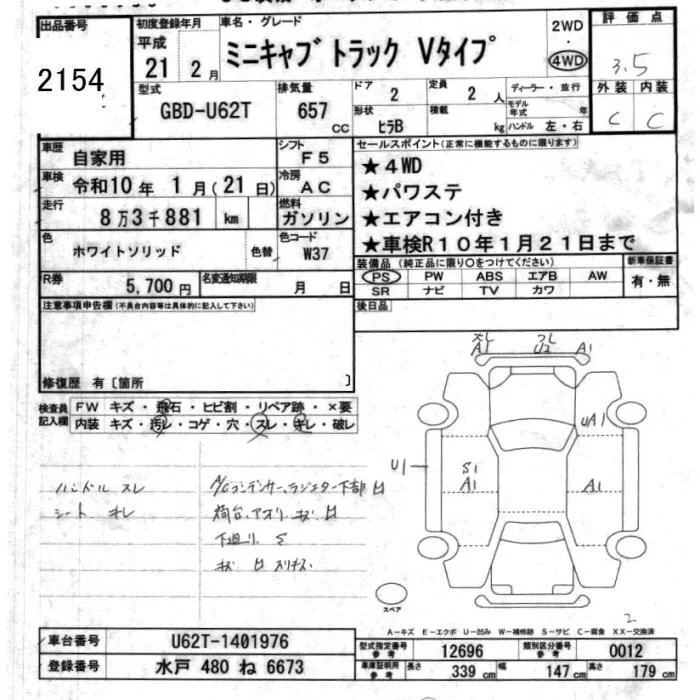 出品番号
2154
初度登録年月
平成
21年 2月
車名・グレード
ミニキャブ トラック Vタイプ
2WD
・
4WD
評価点
3.5
外装 内装
C C
型式
GBD-U62T
排気量
657 cc
ドア
2
定員
2 人
形状
ヒラB
積載
kg
ディーラー・並行
モデル年式 年
ハンドル 左・右
車歴
自家用
シフト
F5
車検
令和10年 1月(21日)
冷房
AC
走行
8万3千881 km
燃料
ガソリン
色
ホワイトソリッド
色替
色コード
W37
R券
5,700円
名変通知期限
月 日
セールスポイント(正常に機能するものに限ります)
★4WD
★パワステ
★エアコン付き
★車検R10年1月21日まで
装備品(純正品に限り○をつけてください)
新車保証書
PS PW ABS エアB AW
SR ナビ TV カワ
有・無
後日品
注意事項申告欄(不具合内容等は具体的に記入して下さい)
修復歴 有〔箇所 〕
検査員記入欄
FW キズ・飛石・ヒビ割・リペア跡・×要
内装 キズ・汚レ・コゲ・穴・スレ・キレ・破レ
ハンドル スレ
シート キレ
A/Cコンデンサー、ラジエター下部 凹
荷台、アオリ キズ 凹
下廻り S
キズ 凹
A1
U2
A1
UA1
U1
S1
A1
A1
スペア
2
A-キズ E-エクボ U-凹み W-補修跡 S-サビ C-腐食 XX-交換済
車台番号
U62T-1401976
登録番号
水戸 480 ね 6673
型式指定番号 参考
12696
類別区分番号 参考
0012
車庫証明用 参考
長さ 339 cm
幅 147 cm
高さ 179 cm